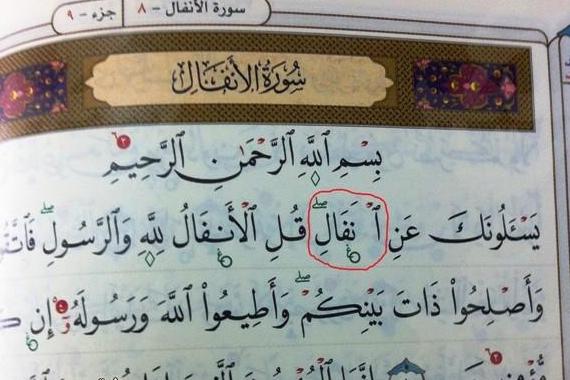 سورة الأنفال - ٨ جزء - ٩
سُورَةُ الأَنفَالِ
بِسْمِ ٱللَّهِ ٱلرَّحْمَٰنِ ٱلرَّحِيمِ
يَسْـَٔلُونَكَ عَنِ ٱ نفَالِ قُلِ ٱلْأَنفَالُ لِلَّهِ وَٱلرَّسُولِ
وَأَصْلِحُوا۟ ذَاتَ بَيْنِكُمْ وَأَطِيعُوا۟ ٱللَّهَ وَرَسُولَهُۥٓ إِن